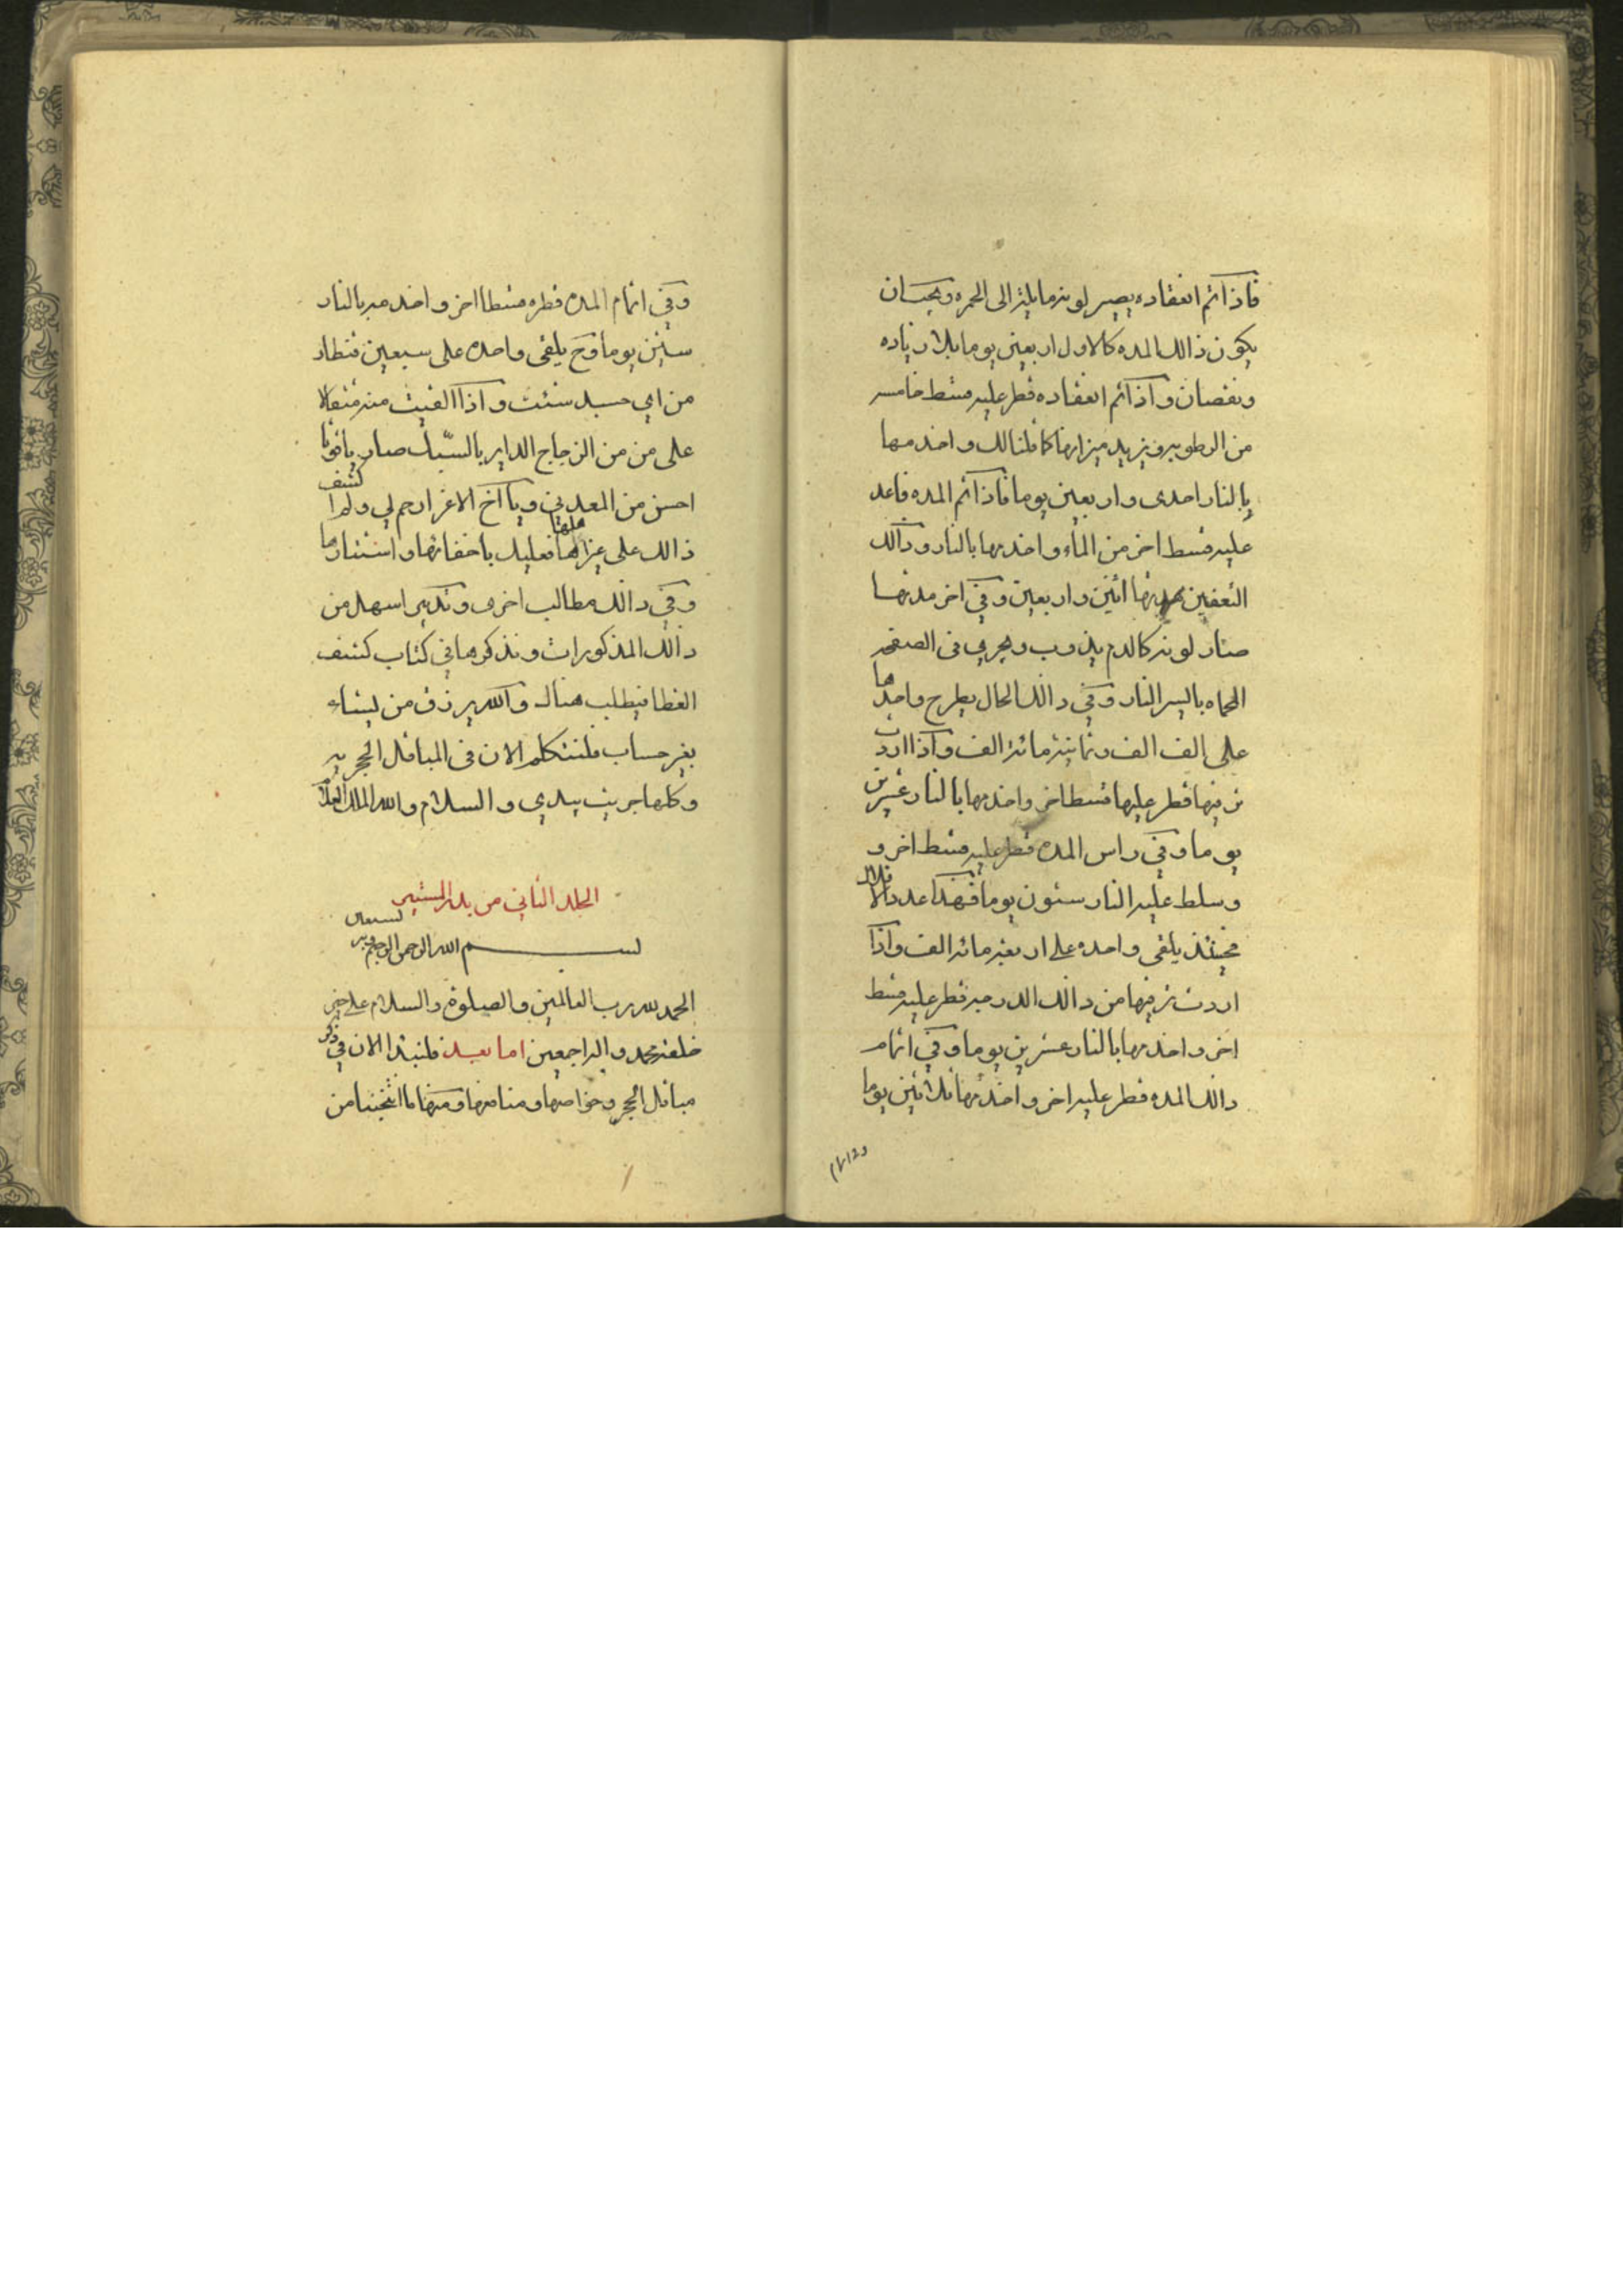 فاذا تم انعقاده يصير لونه مايلة الى الحمره ويجب ان
يكون ذالك المده كالاول اربعين يوما بلا زياده
ونقصان واذا تم انعقاده قطر عليه قسط خامس
من الرطوبه ويزيد ميزانها كما قلنا لك واخدمها
بالنار احدى واربعين يوما فاذا تم المده فاعد
عليه قسط اخر من الماء واخدمها بالنار وذالك
التعفين اثنين واربعين وفي اخر مدتها
صار لونه كالدم يذوب ويجري في الصفحه
المحماه باليسر النار وفي ذالك الحال يطرح واحدها
على الف الف وثمانية مائة الف واذا اردت
تزيبها قطر عليها قسطا اخر واخدمها بالنار عشرين
يوما وفي راس المده قطر عليه قسط اخر و
وسلط عليه النار ستون يوما فهذا عدد
فحينئذ يلقى واحده على اربعة مائة الف واذا
اردت تزيبها من ذالك الدرجه قطر عليه قسط
اخر واخدمها بالنار عشرين يوما وفي اتمام
ذالك المده قطر عليه اخر واخدمها ثلاثين يوما
وفي اتمام المده قطره قسطا اخر واخدمه بالنار
ستين يوما وح يلقى واحده على سبعين قنطار
من اي جسد شئت واذا القيت منه مثقالا
على من من الزجاج الداير بالسبك صار ياقوتا
احسن من المعدني ويا اخ الاعز ارحم لي ولم اكشف
ذالك على غير اهلها فعليك باخفائها واستتارها
وفي ذالك مطالب اخرى وتدبير اسهل من
ذالك المذكورات ونذكرها في كتاب كشف
الغطا فيطلب هناك والله يرزق من يشاء
بغير حساب فلنتكلم الان في المباقل الحجريه
وكلها جربت بيدي والسلام والله الملك العلام
الجلد الثاني من بدر المستنير
بسم الله الرحمن الرحيم وبه نستعين
الحمد لله رب العالمين والصلوة والسلام على خير
خلقه محمد واله اجمعين اما بعد فلنبتدا الان في ذكر
مباقل الحجر وخواصها ومنافعها ومنها ما انتخبنا من